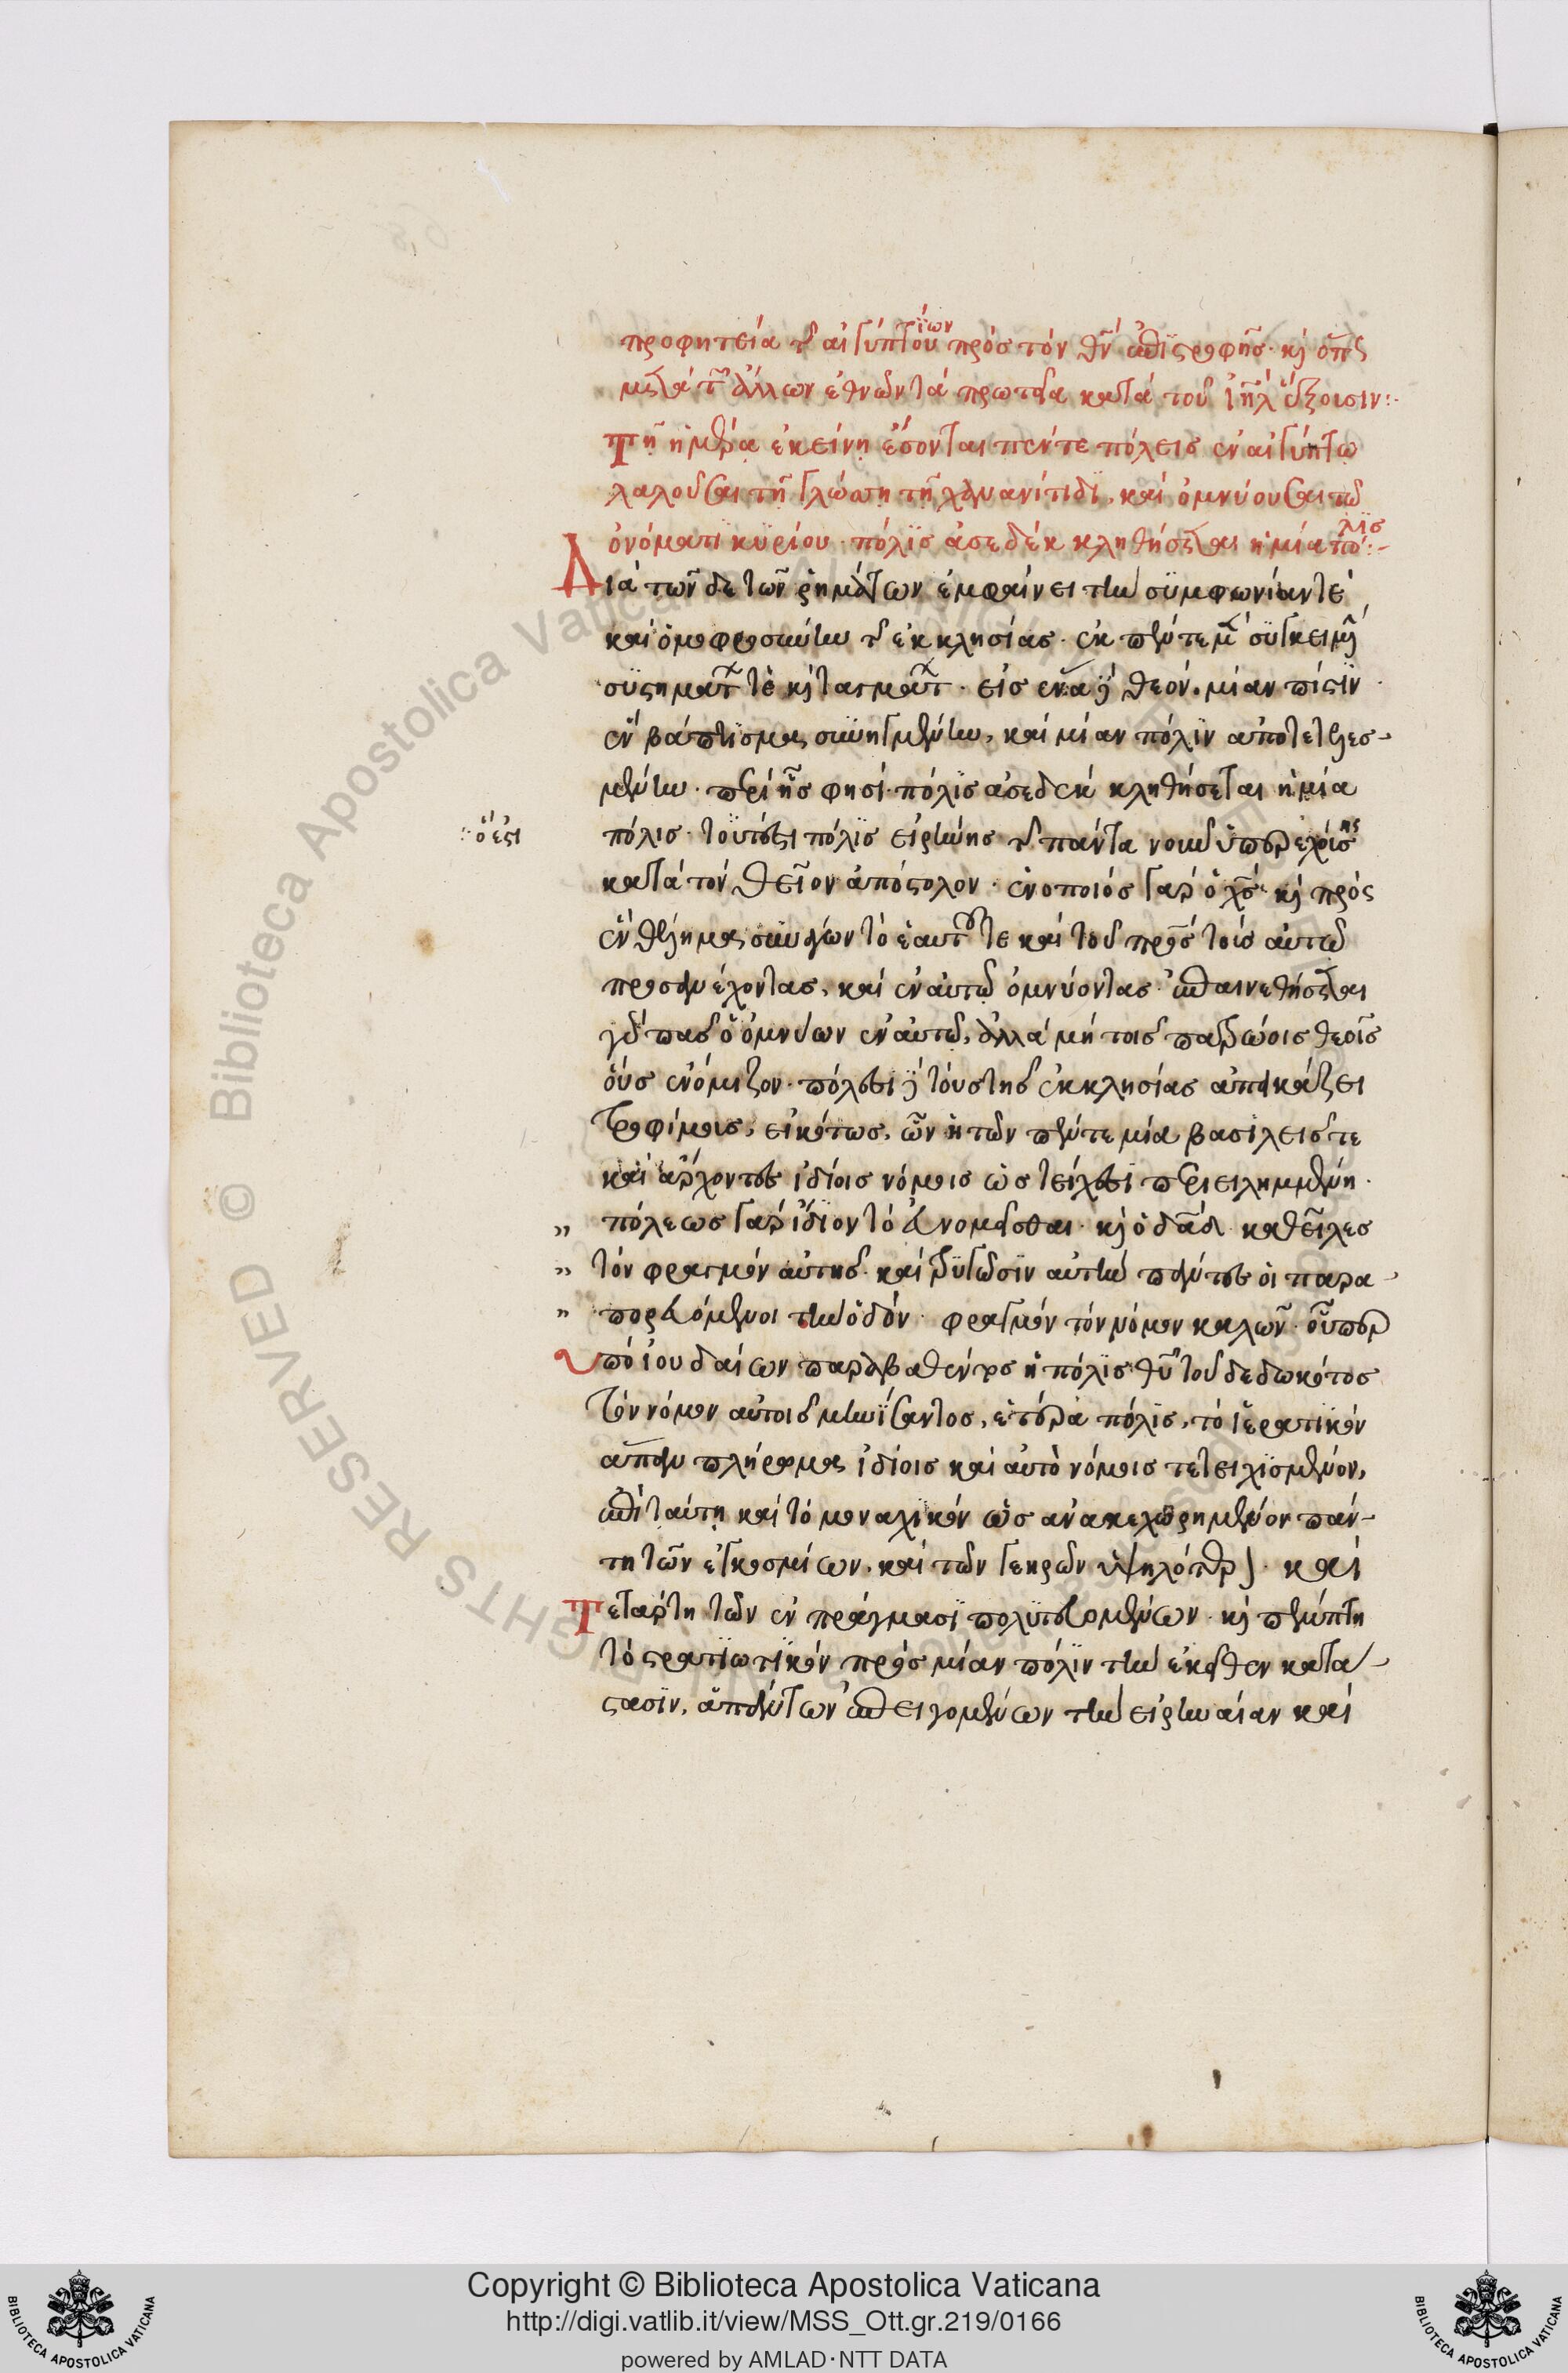 προφητεία τῆς αἰγύπτου ίων πρὸς τὸν θν ἐπιστροφῆς · κὶ ὅπως
μετὰ τῶν ἄλλων ἐθνῶν τὰ πρωτεῖα κατὰ τοῦ ἰηλ ἕξουσιν :·
Τῇ ἡμέρα ἐκείνῃ ἔσονται πέντε πόλεις ἐν αἰγύπτω
λαλοῦσαι τῇ γλώσση τῇ χανανίτιδι, καὶ ὀμνύουσαι τῶ
ὀνόματι κυρίου · πόλις ἀσεδὲκ κληθήσεται ἡ μία πόλις :-
Διὰ τῶν δε τῶν ῥημάτων ἐμφαίνει τὴν συμφωνίαν τὲ
καὶ ὁμοφροσύνην τῆς ἐκκλησίας · ἐκ πέντε μὲν συγκειμένην
συστημάτων τὲ κὶ ταγμάτων · εἰς ἕνα δὲ θεόν · μίαν πίστιν ·
ἓν βάπτισμα, συνηγμένην, καὶ μίαν πόλιν ἀποτετελεσ-
μένην · περὶ ἧς φησί · πόλις ἀσεδὲκ κληθήσεται ἡ μία
πόλις · τουτέστι πόλις εἰρήνης τῆς πάντα νοῦν ὑπερεχούσης
:· ὅ ἐστι
κατὰ τὸν θεῖον ἀπόστολον · ἑνοποιὸς γὰρ ὁ χς κὶ πρὸς
ἓν θέλημα, συνάγων τὸ ἑαυτοῦ τε καὶ τοῦ πρς τοὺς αὐτῶ
προσανέχοντας, καὶ ἐν αὐτῶ ὀμνύοντας · ἐπαινεθήσεται
γὰρ πᾶς ὁ ὀμνύων ἐν αὐτῶ, ἀλλὰ μὴ τοῖς πατρώοις θεοῖς
οὓς ἐνόμιζον · πόλεσι δὲ τοὺς τῆς ἐκκλησίας ἀπεικάζει
τροφίμους, εἰκότως, ὧν ἡ τῶν πέντε μία βασιλεῖς τε
καὶ ἄρχοντες ἰδίοις νόμοις ὡς τείχεσι περιειλημμένη ·
„ πόλεως γὰρ ἴδιον τὸ εὐνομεῖσθαι · κὶ ὁ δᾱδ καθεῖλες
„ τὸν φραγμὸν αὐτῆς · καὶ τρυγῶσιν αὐτὴν πάντες οἱ παρα-
„ πορευόμενοι τὴν ὁδόν · φραγμὸν τὸν νόμον καλῶν · οὗπερ
Ὑπὸ ἰουδαίων παραβαθέντος ἡ πόλις θυ τοῦ δεδωκότος
τὸν νόμον αὐτοῖς μηνίσαντος, ἑτέρα πόλις, τὸ ἱερατικὸν
ἅπαν πλήρωμα, ἰδίοις καὶ αὐτὸ νόμοις τετειχισμένον,
ἐπὶ ταύτη καὶ τὸ μοναχικὸν ὡς ἀνακεχωρημένον πάν-
τη τῶν ἐγκοσμίων, καὶ τῶν γεηρῶν ὑψηλότερον · καὶ
Τετάρτη τῶν ἐν πράγμασι πολιτευομένων · κὶ πέμπτη
τὸ στρατιωτικὸν πρὸς μίαν πόλιν τὴν ἐκεῖθεν κατά-
στασιν, ἁπάντων ἐπειγομένων τὴν εἰρηναίαν καὶ
Copyright © Biblioteca Apostolica Vaticana
http://digi.vatlib.it/view/MSS_Ott.gr.219/0166
powered by AMLAD·NTT DATA